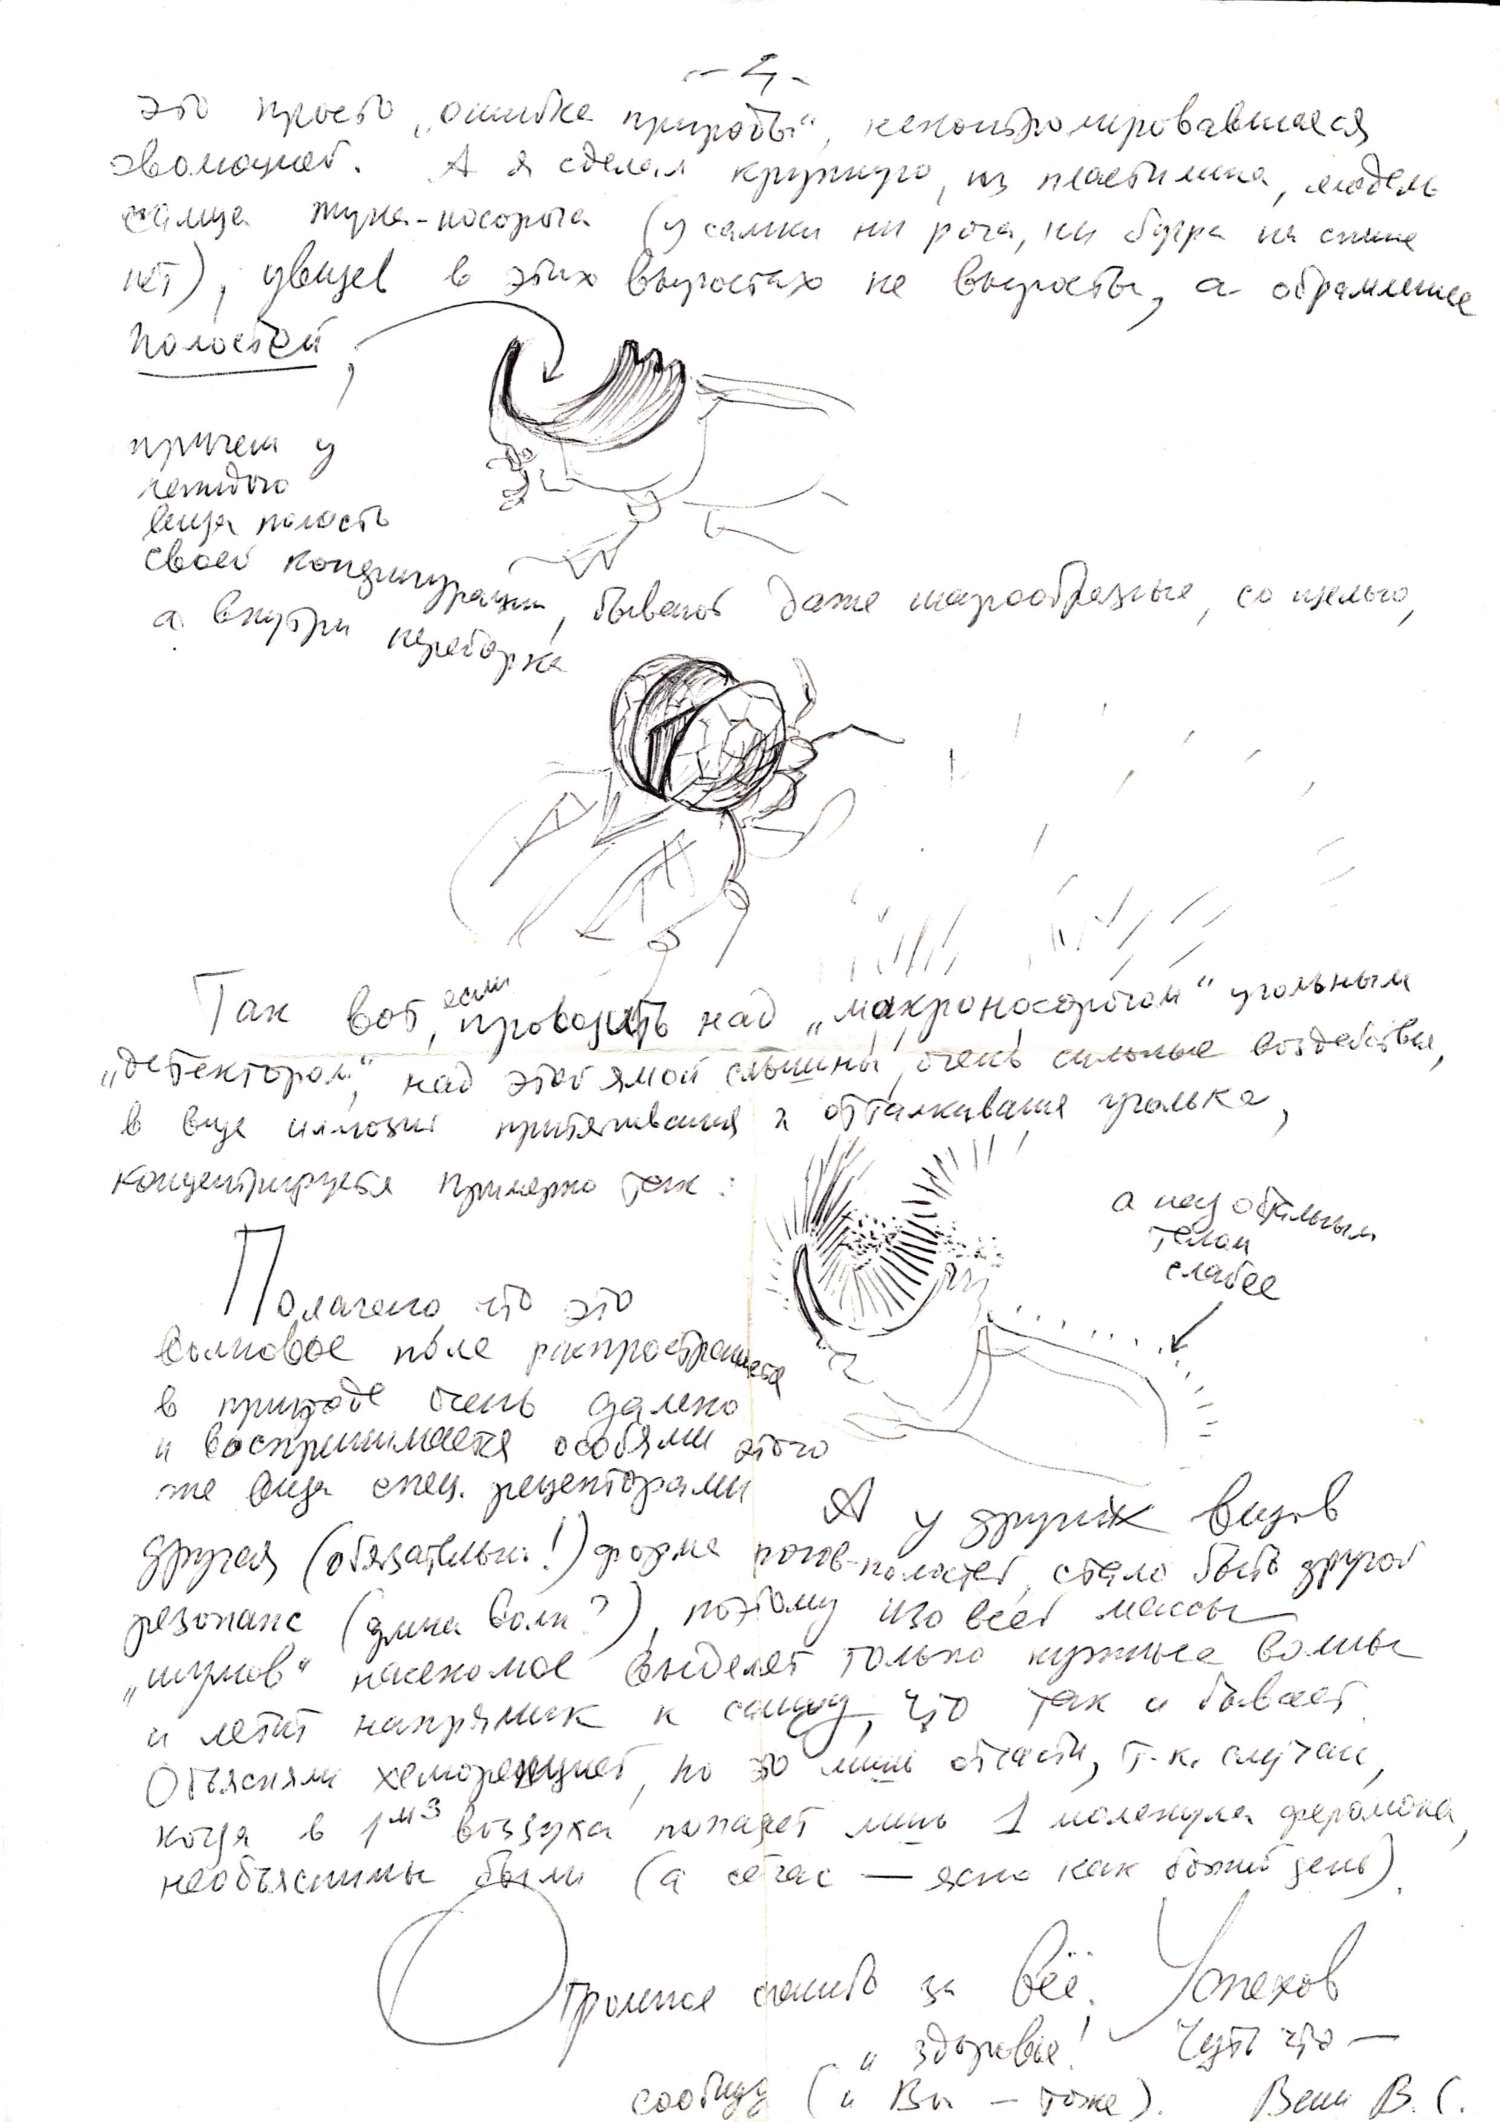 - 4 -
это просто „ошибка природы“, неконтролировавшаяся
эволюцией. А я сделал крупную, из пластилина, модель
самца жука-носорога (у самки ни рога, ни бугра на спине
нет), увидев в этих выростах не выросты, а обрамление
полостей,
причем у
каждого
вида полость
своей конфигурации, бывают даже шарообразные, со щелью,
а внутри перегородка
Так вот, если проводить над „макроносорогом“ угольным
„детектором“, над этой ямой слышны очень сильные воздействия,
в виде иллюзии притягивания и отталкивания уголька,
концентрируется примерно так:
а над остальным
телом
слабее
Полагаю, что это
волновое поле распространяется
в природе очень далеко
и воспринимается особями этого
же вида спец. рецепторами
А у других видов
другая (обязательно!) форма рогов-полостей, стало быть другой
резонанс (длина волн?), поэтому изо всей массы
„шумов“ насекомое выделяет только нужные волны
и летит напрямик к самцу, что так и бывает.
Объясняли хеморецепцией, но это лишь отчасти, т.к. случаи,
когда в 1 м3 воздуха попадает лишь 1 молекула феромона,
необъяснимы были (а сейчас — ясно как божий день).
Огромное спасибо за всё. Успехов
и здоровья! Чуть что —
сообщу (и Вы — тоже). Ваш В.Г.